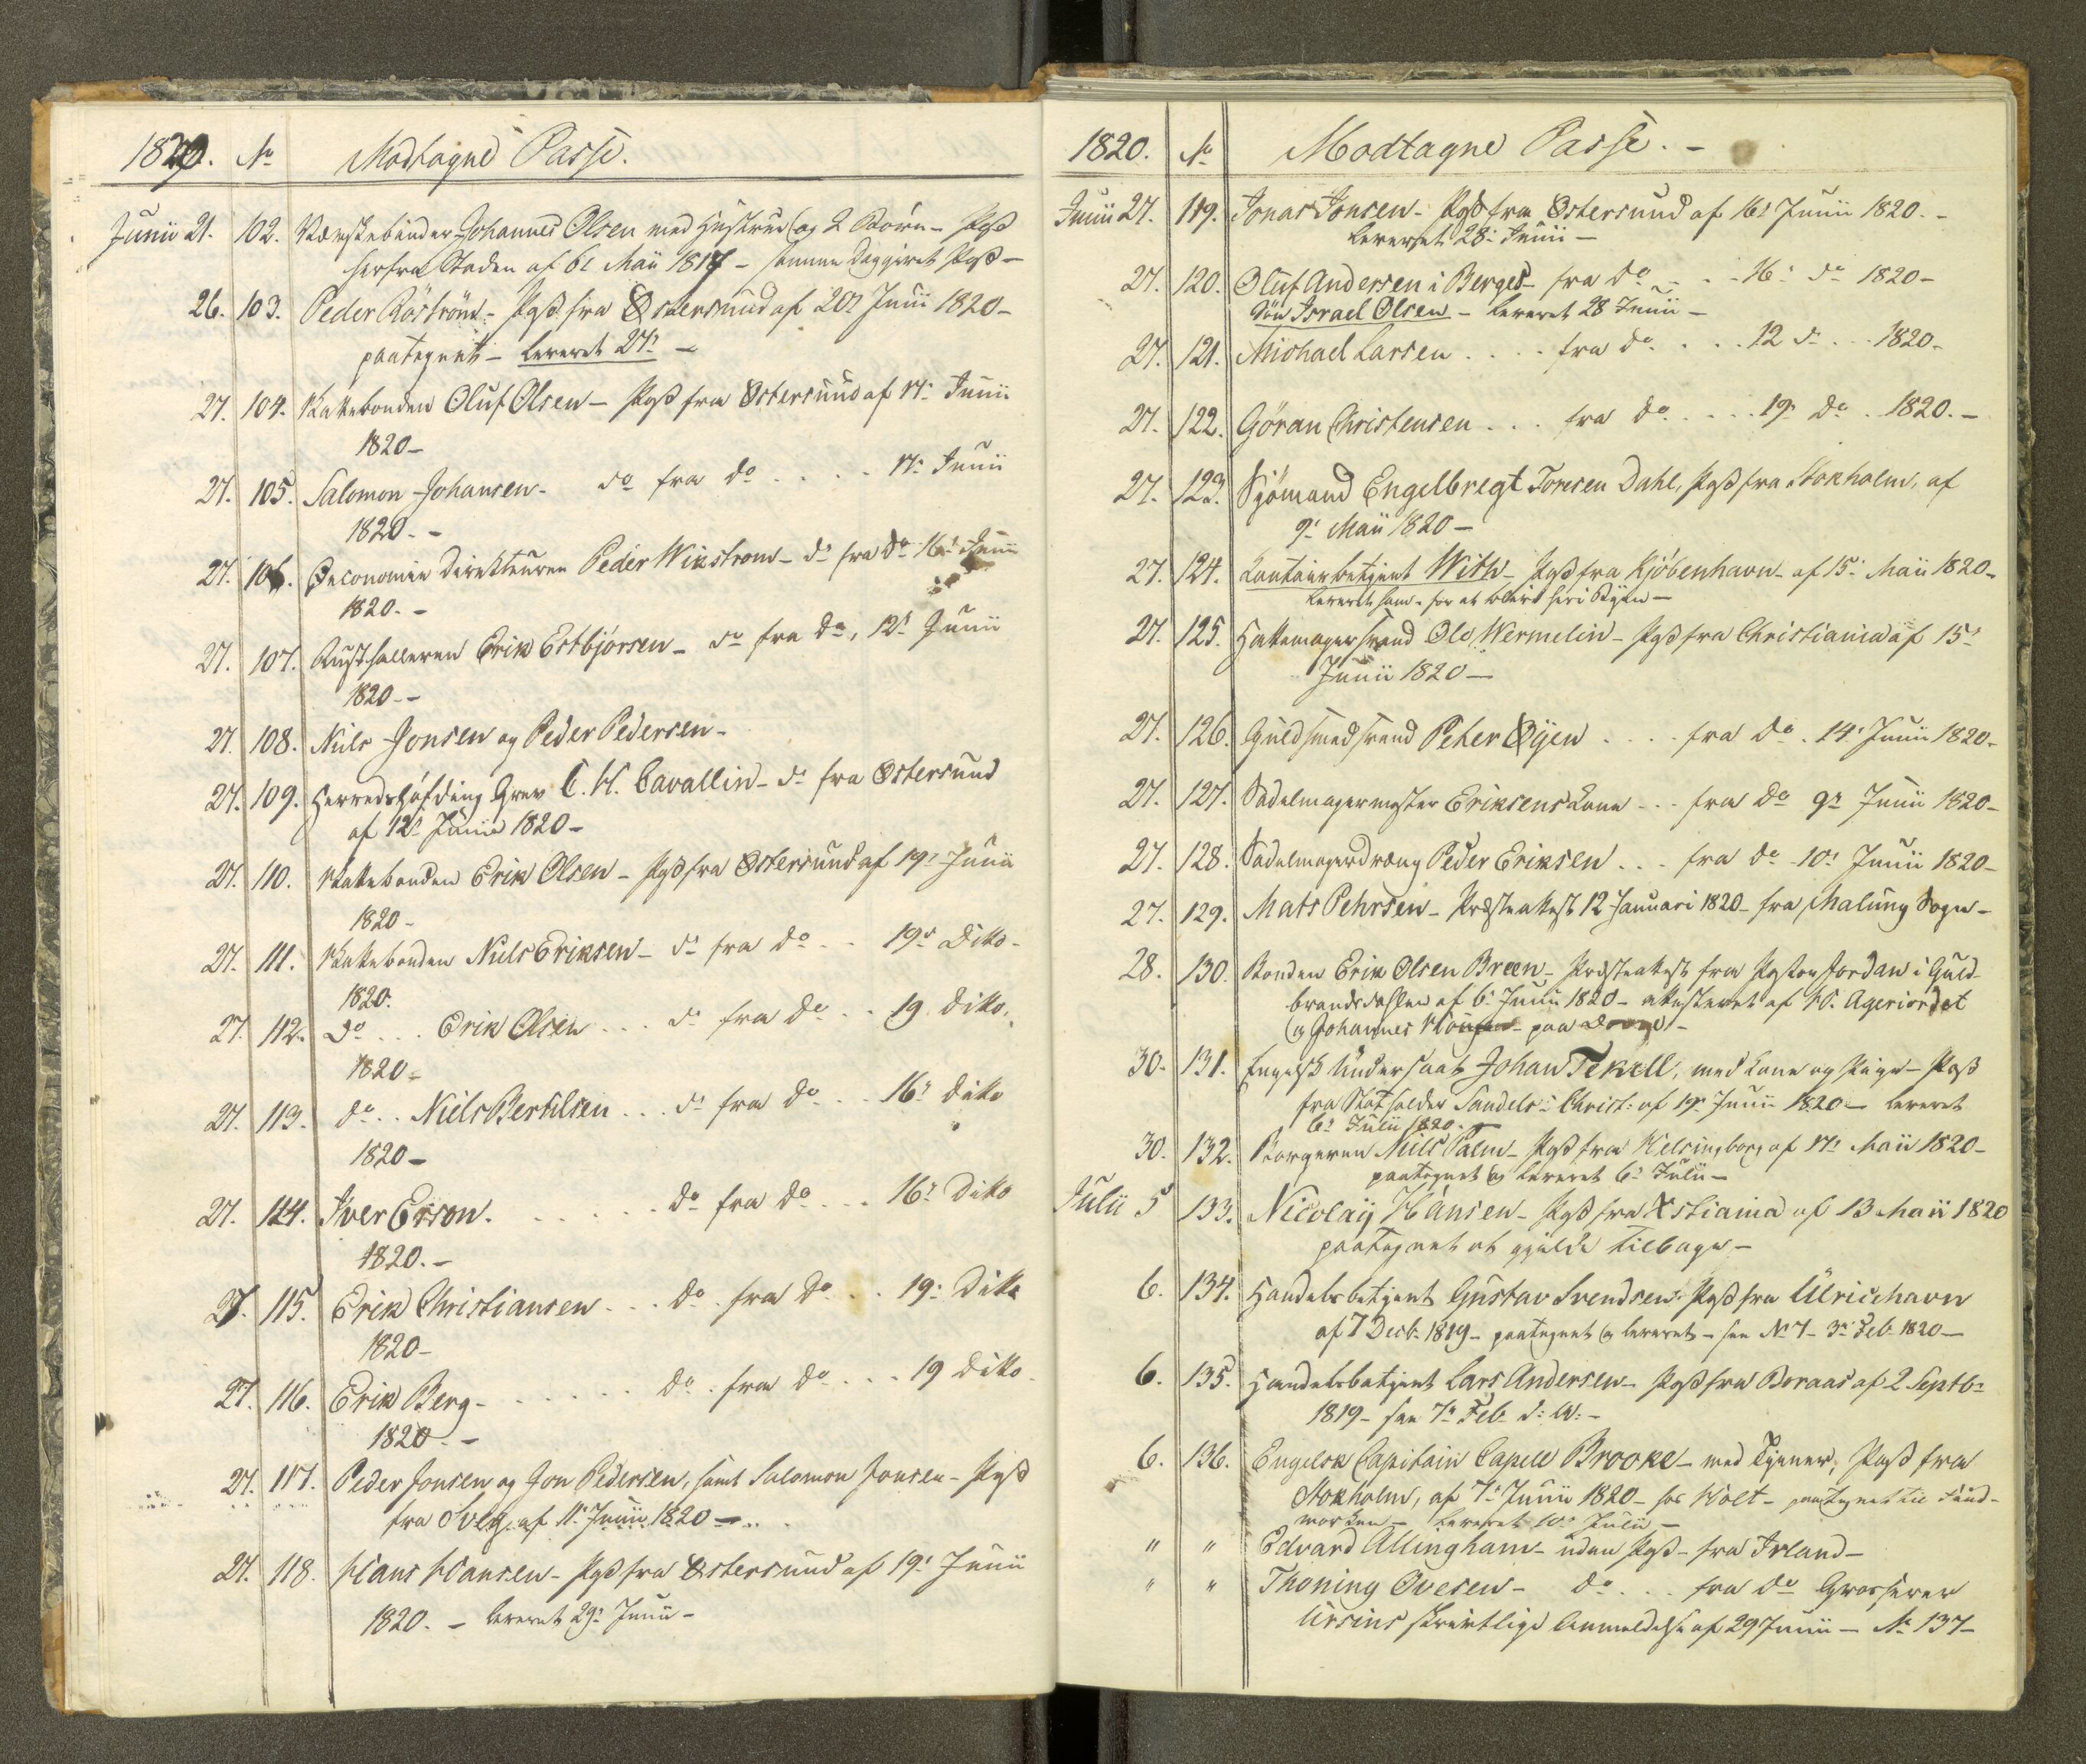 1820. No Modtagne Passe.
Junii 21. 102. Børstebinder Johannes Olsen med Hustrue og 2 Børn - Pass
herfra Staden af 6t Maii 1817 - samme Dag givet Pass -
26. 103. Peder Röström - Pass fra Østersund af 20t Junii 1820 -
paategnet - leveret 27t -
27. 104. Skattebonden Oluf Olsen - Pass fra Østersund af 17t Junii
1820 -
27. 105. Salomon Johansen - do fra do . . . . 17t Junii
1820. -
27. 106. Oeconomie Direkteuren Peder Wikstrom - do fra do 16t Junii
1820. -
27. 107. Rusthalleren Erik Estbjørsen - do fra do, 12t Junii
1820 - -
27. 108. Niels Jonsen og Peder Pedersen -
27. 109. Herredshøfding Grev C. H. Cavallin - do fra Østersund
af 12t Junii 1820 -
27. 110. Skattebonden Erik Olsen - Pass fra Østersund af 19t Junii
1820 -
27. 111. Skattebonden Niels Eriksen - do fra do . . 19t Ditto -
1820.
27. 112. Do . . . Erik Olsen . . . do fra do . . 19 ditto.
1820 -
27. 113. do . . Niels Bertilsen . . . do fra do . . . 16t ditto
1820 -
27. 114. Iver Erson . . . . . . . do fra do . . . 16t Ditto
1820. -
27. 115. Erik Christiansen . . . do. fra do . . . 19t Ditto
1820 -
27. 116. Erik Berg - . . . . . do. fra do . . . 19 ditto.
1820. -
27. 117. Peder Jonsen og Jon Pedersen, samt Salomon Jonsen - Pass
fra Sveg. af 11t Junii 1820 - . . .
27. 118. Hans Hansen - Pass fra Østersund af 19t Junii
1820. - leveret 29t Junii -
1820. No Modtagne Passe. -
Junii 27. 119. Jonas Jonsen - Pass fra Østersund af 16t Junii 1820. -
leveret 28t Junii -
27. 120. Oluf Andersen i Berges - fra do . . . 16t do 1820 -
Søn Israel Olsen - leveret 28 Junii -
27. 121. Michael Larsen . . . . fra do . . . . 12 do . . . 1820 -
27. 122. Göran Christensen . . . fra do . . . . 19t do . 1820. -
27. 123. Sjömand Engelbregt Toresen Dahl, Pass fra Stokholm, af
9t Maii 1820 -
27. 124. Contoirbetjent With - Pass fra Kjöbenhavn - af 15t Maii 1820 -
leveret ham - for at være her i Byen -
27. 125. Hattemagersvend Ole Wermelin - Pass fra Christiania af 15t
Junii 1820 -
27. 126. Guldsmedsvend Peter Øijen . . . . fra do . 14t Junii 1820 -
27. 127. Sadelmagermester Eriksens Kone - . . fra do 9t Junii 1820 -
27. 128. Sadelmagerdreng Peder Eriksen . . . fra do - 10t Junii 1820 -
27. 129. Mats Pehrsen - Præsteattest 12 Januari 1820 - fra Malung Sogn -
28. 130. Bonden Erik Olsen Breen - Præsteattest fra Pastor Jordan i Guld-
brandsdahlen af 6t Junii 1820 - attesteret af H. Ageriordet
og Johannes paa Dovre -
30. 131. Engelsk Undersaat Johan Tekell, med Kone og Pige - Pass
fra Statholder Sandels i Christ: af 19t Junii 1820 - leveret
6t Julii 1820 -
30. 132. Borgeren Niels Palm - Pass fra Helsingborg af 17t Maii 1820 -
paategnet og leveret 6t Julii -
Julii 5 133. Nicolaij Hansen - Pass fra Xstiania af 13 Maii 1820
paategnet at gjelde tilbage -
6. 134. Handelsbetjent Gustav Svendsen - Pass fra Ulricehavn
af 7 Decb. 1819 - paategnet og leveret - see No 7 - 3t Feb. 1820 -
6. 135. Handelsbetjent Lars Andersen - Pass fra Boraas af 2 Septb:
1819 - see 7t Feb. d: A: -
6. 136. Engelsk Capitain Capell Brooke - med Tjener, Pass fra
Stokholm, af 7t Junii 1820 - hos Holt - paategnet til Find-
marken - leveret 10t Julii -
" " Edvard Allingham - uden Pass - fra Irland -
" " Thoning Ovesen - do . . . fra do Grosserer
Ursins skrivtlige Anmeldelse af 29 Junii - No 137 -